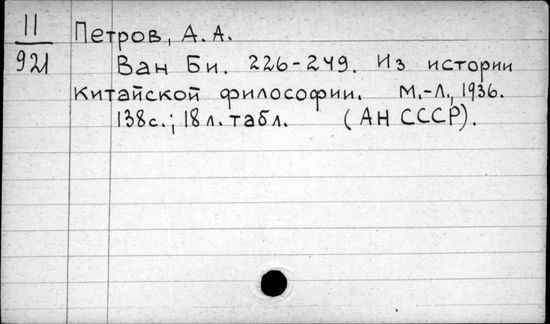 II
921
Петров, А. А.
Ван Би. 226-249. Из истории
китайской философии. М.-Л., 1936.
138с.; 18 л. табл. (АН СССР).